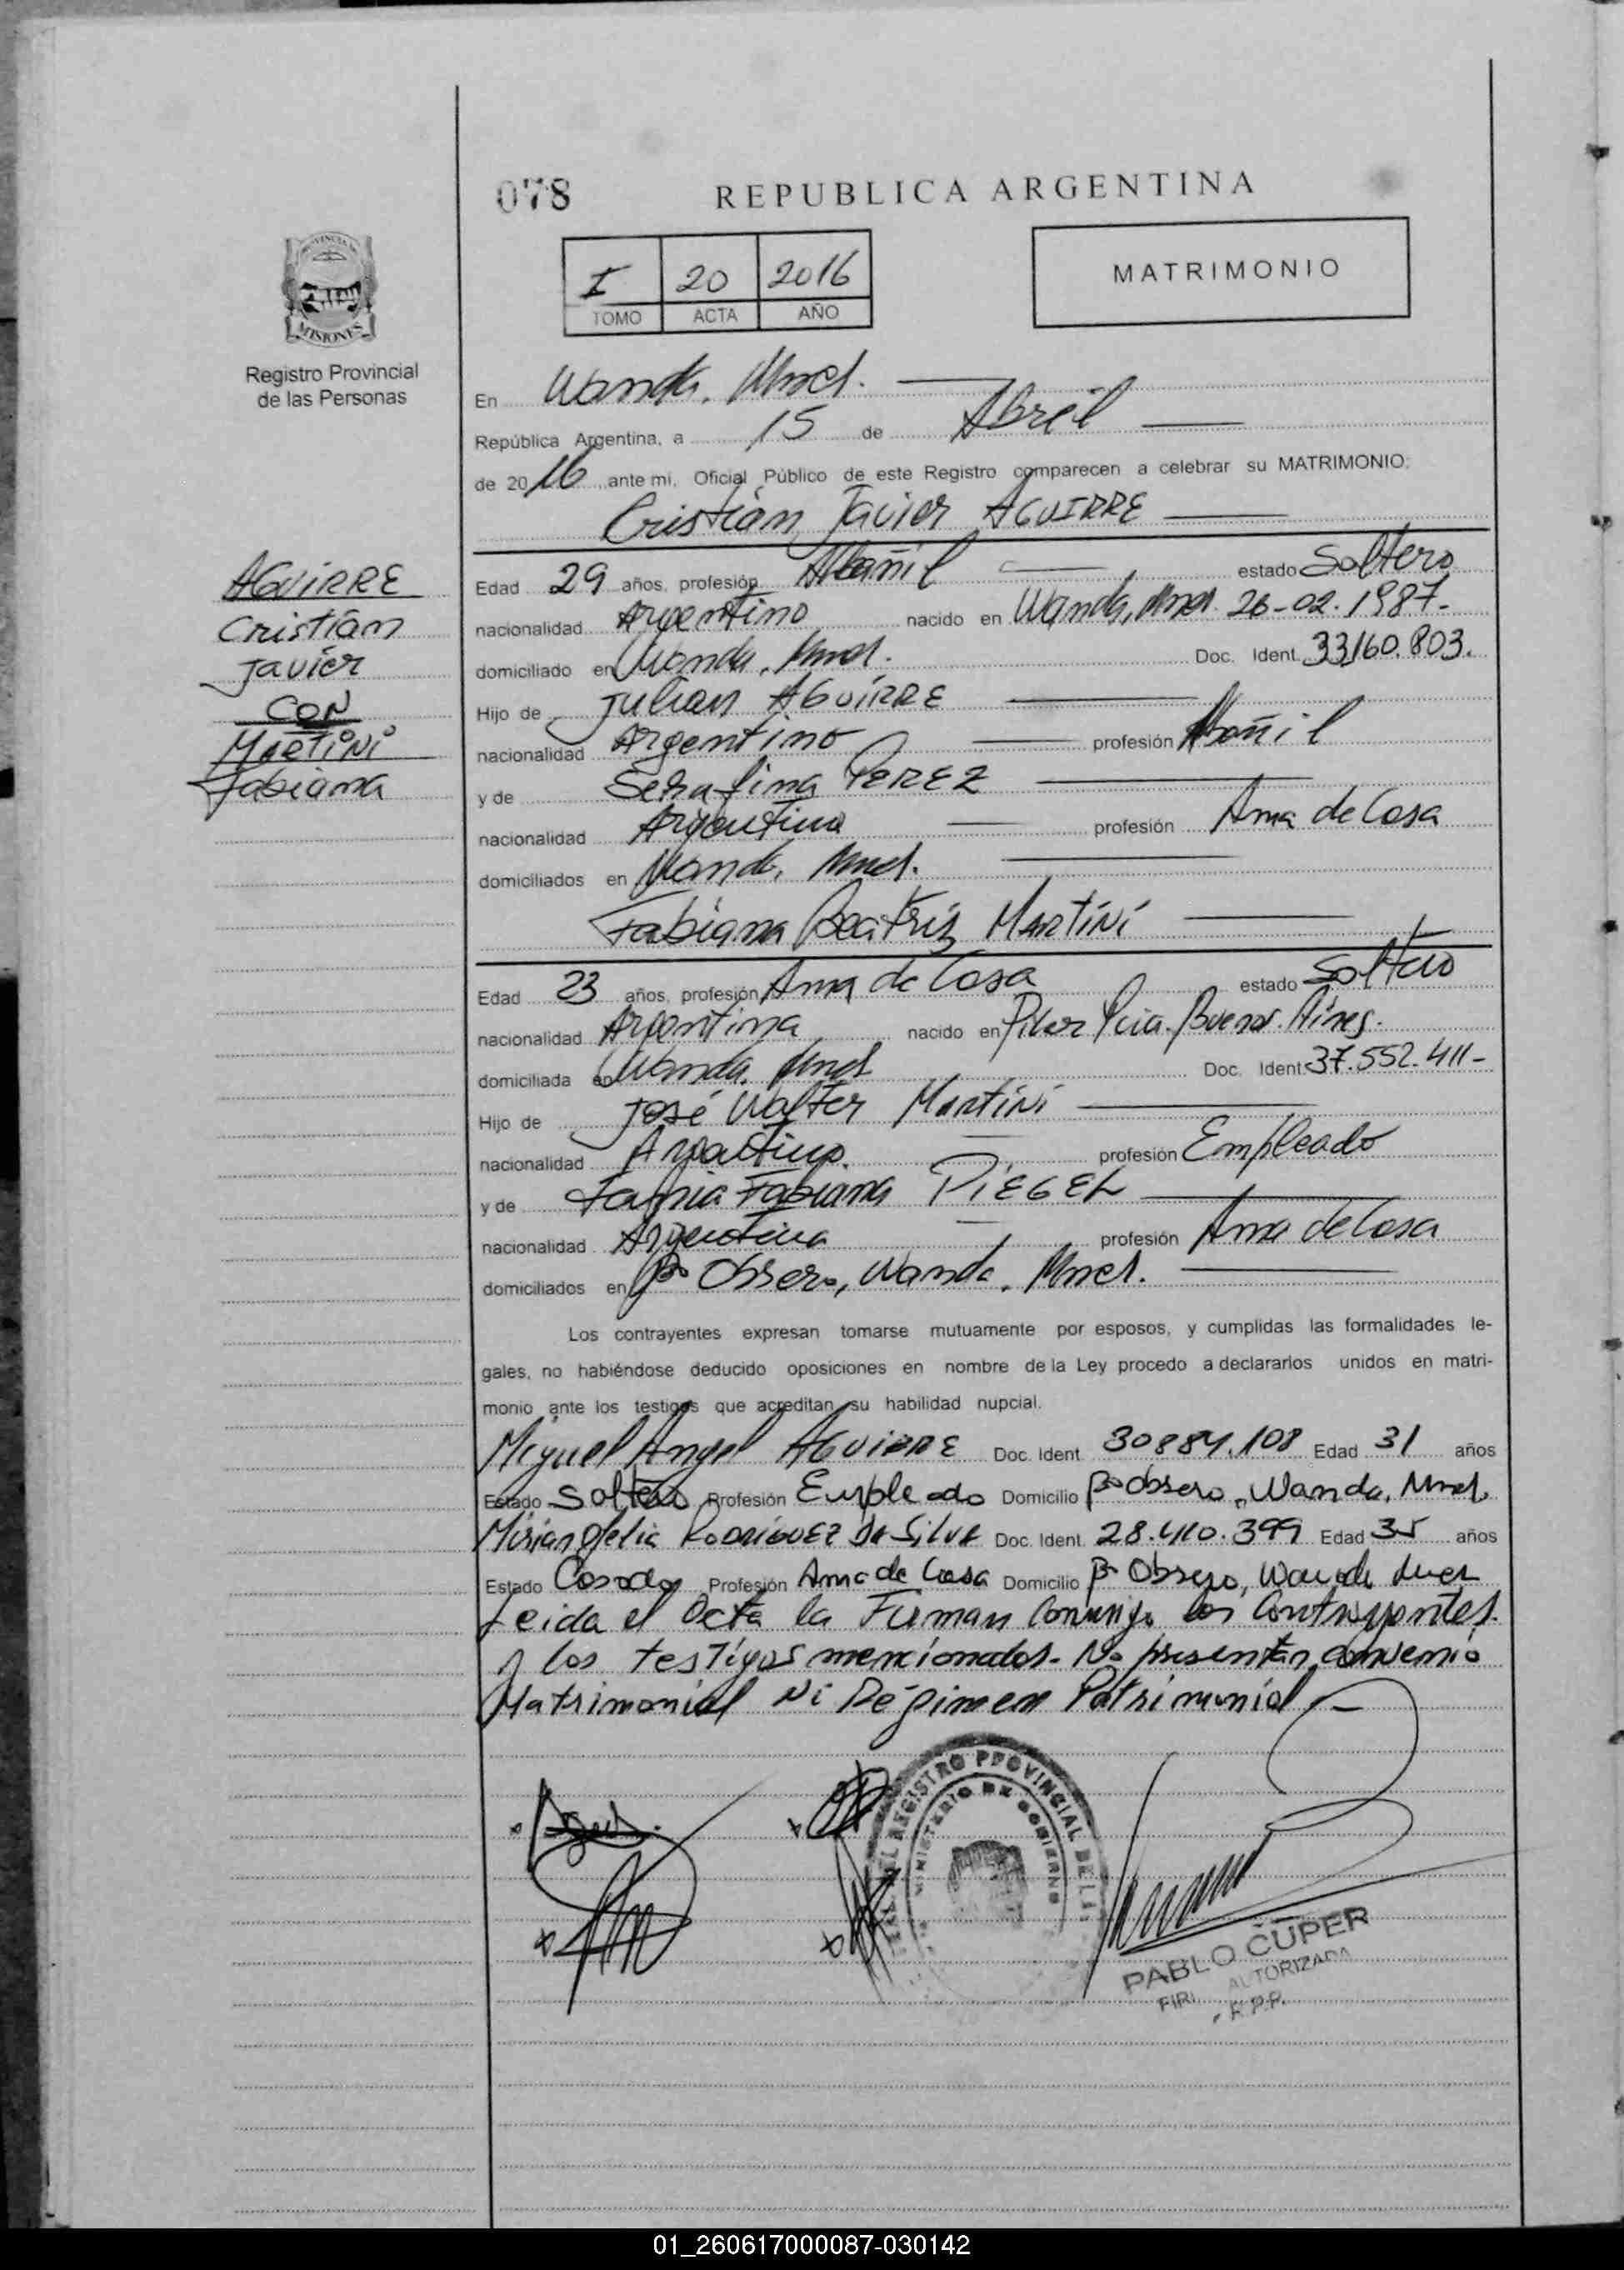 078
REPUBLICA ARGENTINA
I 20 2016
TOMO ACTA AÑO
MATRIMONIO
MISIONES
Registro Provincial
de las Personas
En Wanda, Mnes.
República Argentina, a 15 de Abril
de 2016 ante mi, Oficial Público de este Registro comparecen a celebrar su MATRIMONIO:
Cristian Javier AGUIRRE
AGUIRRE
Cristian
Javier
CON
MARTINI
Fabiana
Edad 29 años, profesión Albañil estado Soltero
nacionalidad Argentino nacido en Wanda, Mnes. 26-02.1987.-
domiciliado en Wanda, Mnes. Doc. Ident. 33160.803.
Hijo de Julian AGUIRRE
nacionalidad Argentino profesión Albañil
y de Serafina PEREZ
nacionalidad Argentina profesión Ama de Casa
domiciliados en Wanda, Mnes.
Fabiana Beatriz MARTINI
Edad 23 años, profesión Ama de Casa estado Soltero
nacionalidad Argentina nacido en Pilar Pcia. Buenos Aires.
domiciliada en Wanda, Mnes Doc. Ident. 37.552.411-
Hijo de José Walter Martini
nacionalidad Argentino. profesión Empleado
y de Fabiana DIEGEL
nacionalidad Argentina profesión Ama de Casa
domiciliados en Bº Obrero, Wanda, Mnes.
Los contrayentes expresan tomarse mutuamente por esposos, y cumplidas las formalidades le-
gales, no habiéndose deducido oposiciones en nombre de la Ley procedo a declararlos unidos en matri-
monio ante los testigos que acreditan su habilidad nupcial.
Miguel Angel AGUIRRE Doc. Ident. 30884.108 Edad 31 años
Estado Soltero Profesión Empleado Domicilio Bº Obrero, Wanda, Mnes.
Mirian Ofelia RODRIGUEZ DA SILVA Doc. Ident. 28.410.399 Edad 35 años
Estado Casada Profesión Ama de Casa Domicilio Bº Obrero, Wanda Mnes
Leida el Acta la Firman Conmigo los Contrayentes.
y los testigos mencionados.- No presentan convenio
Matrimonial Ni Régimen Patrimonial.-
REGISTRO PROVINCIAL DE LAS
MINISTERIO DE GOBIERNO
PABLO CUPER
AUTORIZADA
R.P.P.
01_260617000087-030142